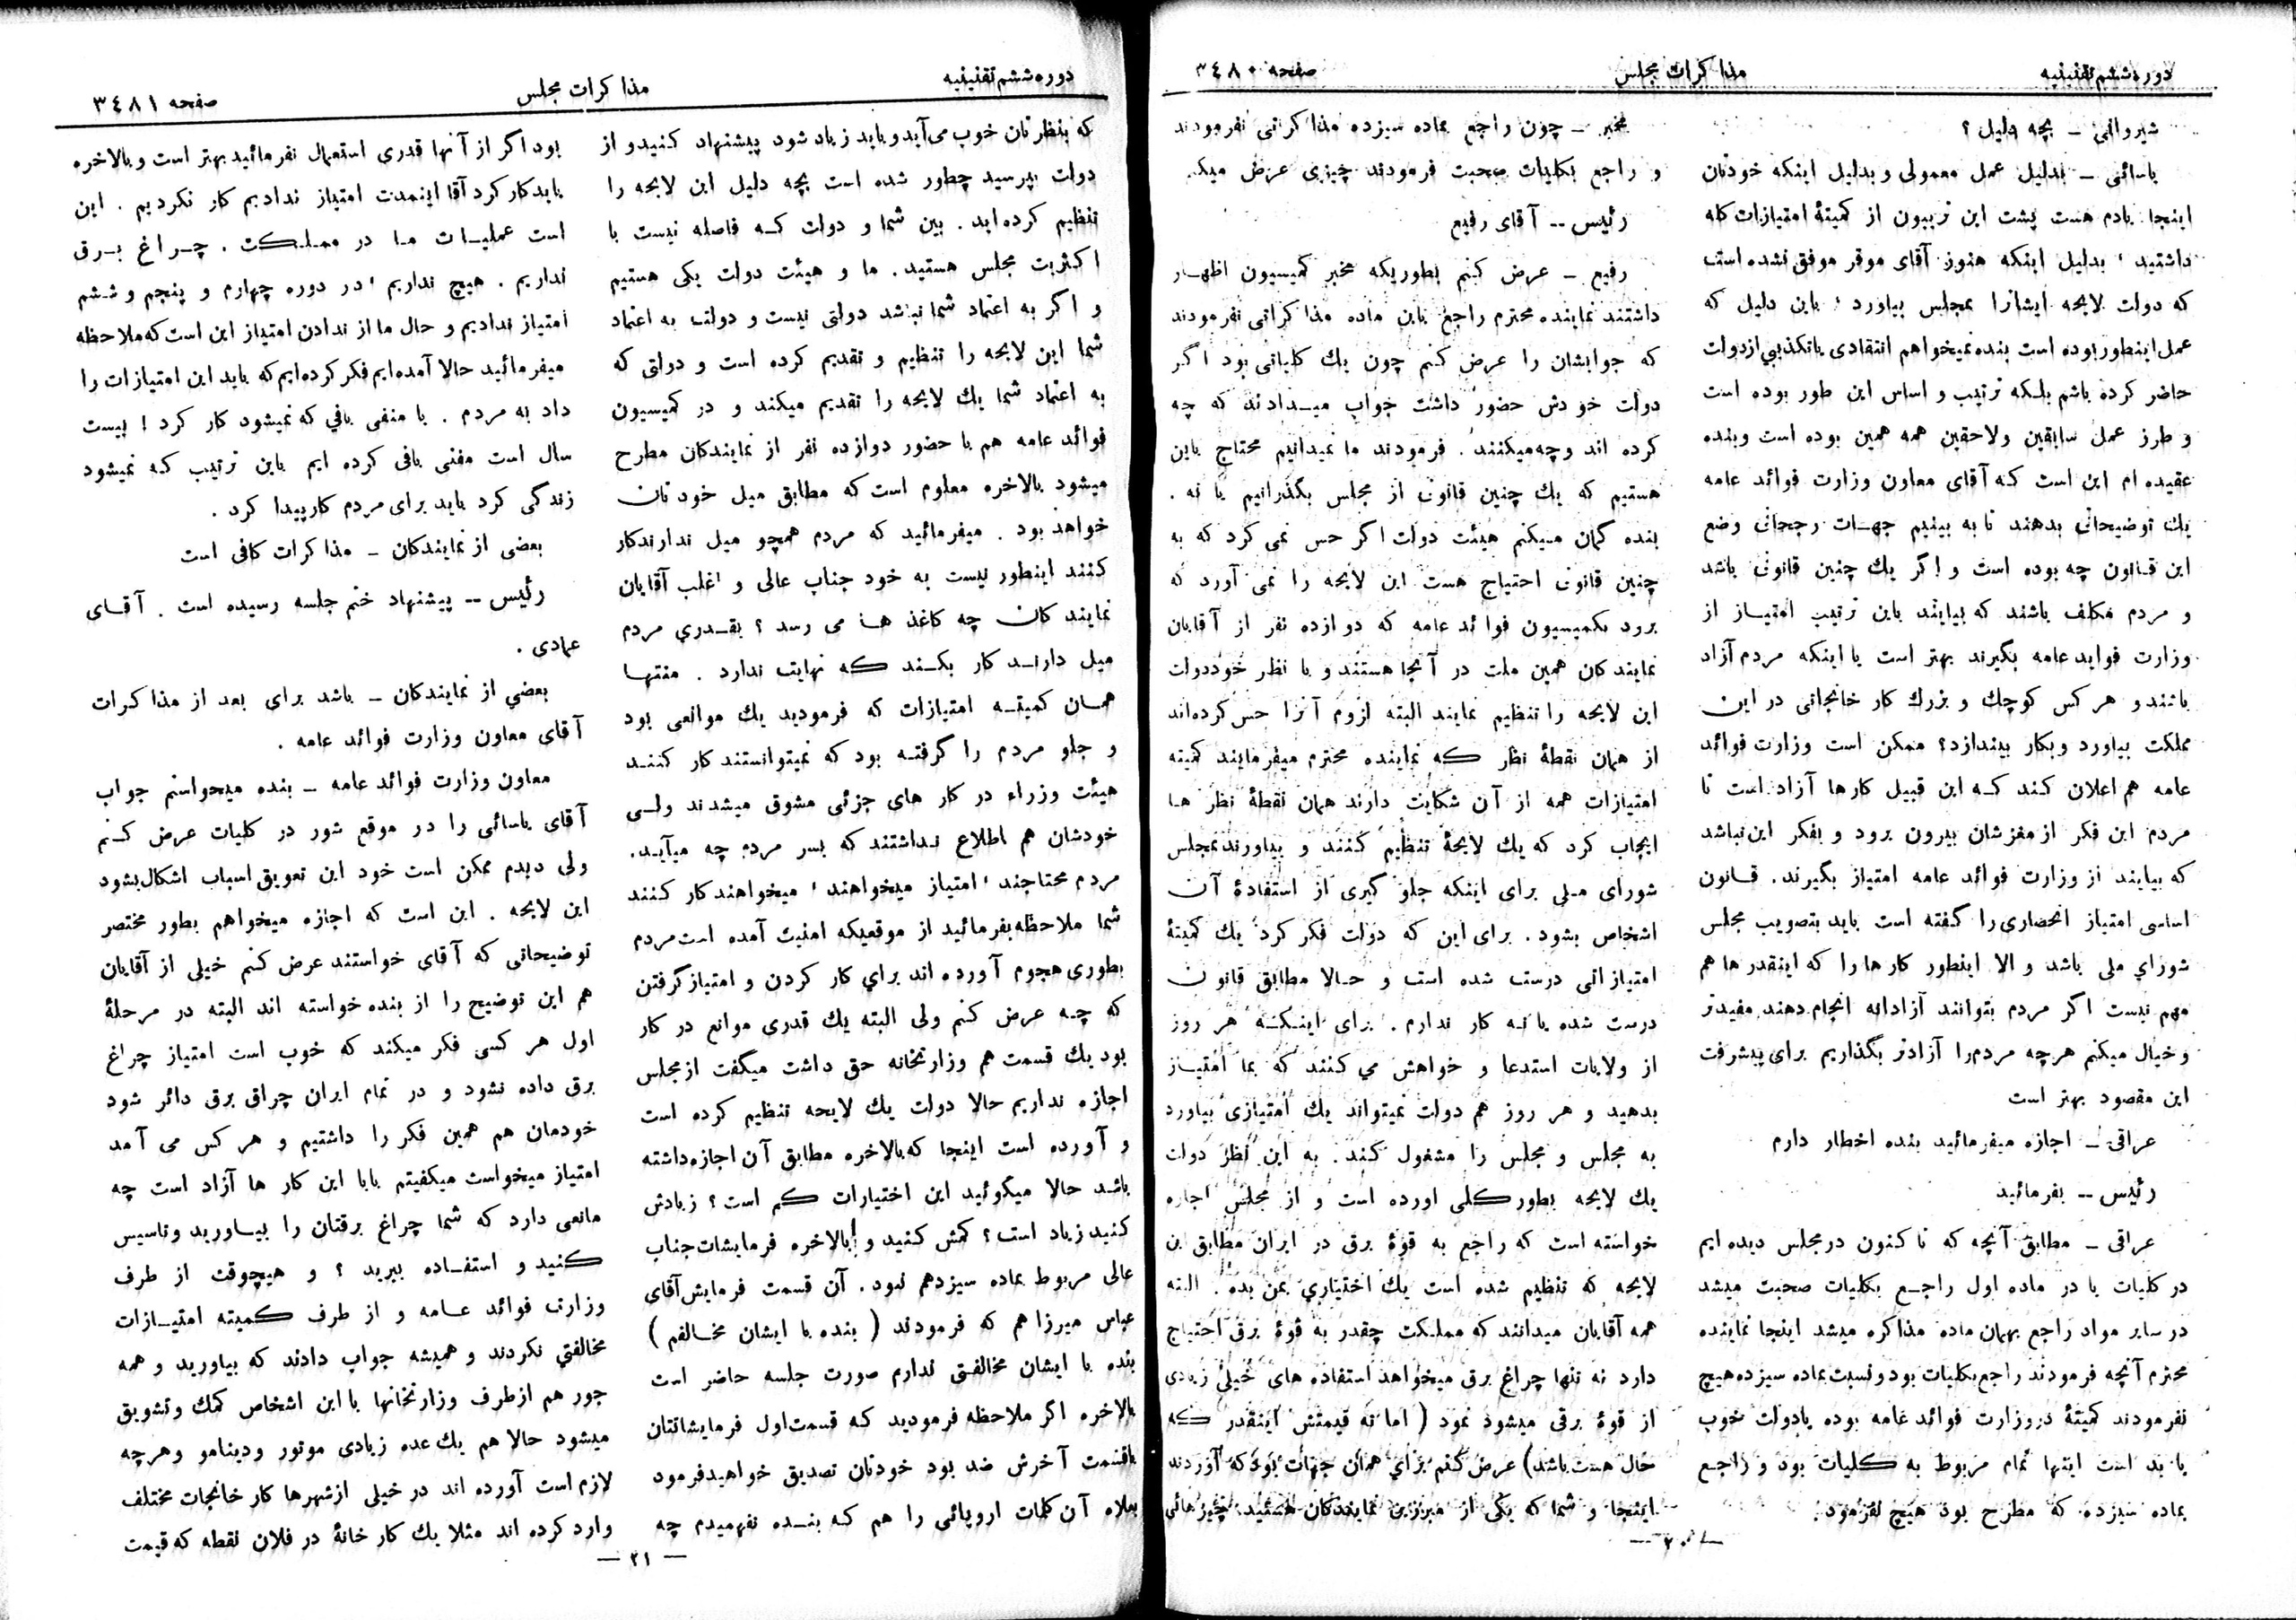 دوره ششم تقنینیه
مذاکرات مجلس
صفحه ۳٤۸۰
شیروانی ــ بچه دلیل ؟
یاسائی ــ بدلیل عمل معمولی و بدلیل اینکه خودتان
اینجا یادم هست پشت این تریبون از کمیتهٔ امتیازات گله
داشتید ، بدلیل اینکه هنوز آقای موقر موفق نشده است
که دولت لایحه ایشانرا بمجلس بیاورد ، باین دلیل که
عمل اینطور بوده است بنده نمیخواهم انتقادی یا تکذیبی از دولت
حاضر کرده باشم بلکه ترتیب و اساس این طور بوده است
و طرز عمل سابقین ولاحقین همه همین بوده است وبنده
عقیده ام این است که آقای معاون وزارت فوائد عامه
یك توضیحاتی بدهند تا به بینیم جهات رجحانی وضع
این قانون چه بوده است و اگر یك چنین قانونی باشد
و مردم مکلف باشند که بیایند باین ترتیب امتیاز از
وزارت فواید عامه بگیرند بهتر است یا اینکه مردم آزاد
باشند و هر کس کوچك و بزرك کار خانجاتی در این
مملکت بیاورد وبکار بیندازد؟ ممکن است وزارت فوائد
عامه هم اعلان کند که این قبیل کارها آزاد است تا
مردم این فکر از مغزشان بیرون برود و بفکر این نباشد
که بیایند از وزارت فوائد عامه امتیاز بگیرند. قانون
اساسی امتیاز انحصاری را گفته است باید بتصویب مجلس
شورای ملی باشد و الا اینطور کارها را که اینقدر ها هم
مهم نیست اگر مردم بتوانند آزادانه انجام دهند مفیدتر
و خیال میکنم هرچه مردم را آزادتر بگذاریم برای پیشرفت
این مقصود بهتر است
عراقی ــ اجازه میفرمائید بنده اخطار دارم
رئیس ــ بفرمائید
عراقی ــ مطابق آنچه که تا کنون در مجلس دیده ایم
در کلیات یا در ماده اول راجع بکلیات صحبت میشد
در سایر مواد راجع بهمان ماده مذاکره میشد اینجا نماینده
محترم آنچه فرمودند راجع بکلیات بود ونسبت بماده سیزده هیچ
نفرمودند کمیتهٔ در وزارت فوائد عامه بوده یا دولت خوب
یا بد است اینها تمام مربوط به کلیات بود و راجع
بماده سیزده که مطرح بود هیچ نفرمود.
مخبر ــ چون راجع بماده سیزده مذاکراتی نفرمودند
و راجع بکلیات صحبت فرمودند چیزی عرض میکـ
رئیس ــ آقای رفیع
رفیع ــ عرض کنم بطوریکه مخبر کمیسیون اظهار
داشتند نماینده محترم راجع باین ماده مذاکراتی نفرمودند
که جوابشان را عرض کنم چون یك کلیاتی بود اگر
دولت خودش حضور داشت جواب میدادند که چه
کرده اند وچه میکنند. فرمودند ما نمیدانیم محتاج باین
هستیم که یك چنین قانونی از مجلس بگذرانیم یا نه .
بنده گمان میکنم هیئت دولت اگر حس نمی کرد که به
چنین قانونی احتیاج هست این لایحه را نمی آورد که
برود بکمیسیون فوائد عامه که دوازده نفر از آقایان
نمایندکان همین ملت در آنجا هستند و با نظر خود دولت
این لایحه را تنظیم نمایند البته لزوم آنرا حس کرده اند
از همان نقطهٔ نظر که نماینده محترم میفرمایند کمیته
امتیازات همه از آن شکایت دارند همان نقطهٔ نظر ها
ایجاب کرد که یك لایحهٔ تنظیم کنند و بیاورند بمجلس
شورای ملی برای اینکه جلو گیری از استفادهٔ آن
اشخاص بشود. برای این که دولت فکر کرد یك کمیتهٔ
امتیازاتی درست شده است و حالا مطابق قانون
درست شده یا نه کار ندارم. برای اینکه هر روز
از ولایات استدعا و خواهش می کنند که بما امتیاز
بدهید و هر روز هم دولت نمیتواند یك امتیازی بیاورد
به مجلس و مجلس را مشغول کند. به این نظر دولت
یك لایحه بطور کلی اورده است و از مجلس اجازه
خواسته است که راجع به قوهٔ برق در ایران مطابق این
لایحه که تنظیم شده است یك اختیاری بمن بده . البته
همه آقایان میدانند که مملکت چقدر به قوهٔ برق احتیاج
دارد نه تنها چراغ برق میخواهد استفاده های خیلی زیادی
از قوهٔ برقی میشود نمود ( اما نه قیمتش اینقدر که
حال هست باشد) عرض کنم برای همان جهات بود که آوردند
اینجا و شما که یکی از مبرزین نمایندکان هستید، چیزهائی
ــ ۲۰ ــ
دوره ششم تقنینیه
مذاکرات مجلس
صفحه ۳٤۸۱
که بنظرتان خوب می آید و باید زیاد شود پیشنهاد کنید و از
دولت بپرسید چطور شده است بچه دلیل این لایحه را
تنظیم کرده اید . بین شما و دولت که فاصله نیست با
اکثریت مجلس هستید. ما و هیئت دولت یکی هستیم
و اگر به اعتماد شما نباشد دولتی نیست و دولت به اعتماد
شما این لایحه را تنظیم و تقدیم کرده است و دولتی که
به اعتماد شما یك لایحه را تقدیم میکند و در کمیسیون
فوائد عامه هم با حضور دوازده نفر از نمایندکان مطرح
میشود بالاخره معلوم است که مطابق میل خودتان
خواهد بود . میفرمائید که مردم همچو میل ندارند کار
کنند اینطور نیست به خود جناب عالی و اغلب آقایان
نمایندکان چه کاغذ ها می رسد ؟ بقدری مردم
میل دارند کار بکنند که نهایت ندارد . منتها
همان کمیته امتیازات که فرمودید یك موانعی بود
و جلو مردم را گرفته بود که نمیتوانستند کار کنند
هیئت وزراء در کار های جزئی مشوق میشدند ولی
خودشان هم اطلاع نداشتند که بسر مردم چه میآید.
مردم محتاجند ، امتیاز میخواهند ، میخواهند کار کنند
شما ملاحظه بفرمائید از موقعیکه امنیت آمده است مردم
بطوری هجوم آورده اند برای کار کردن و امتیاز گرفتن
که چه عرض کنم ولی البته یك قدری موانع در کار
بود یك قسمت هم وزارتخانه حق داشت میگفت از مجلس
اجازه نداریم حالا دولت یك لایحه تنظیم کرده است
و آورده است اینجا که بالاخره مطابق آن اجازه داشته
باشد حالا میگوئید این اختیارات کم است ؟ زیادش
کنید زیاد است ؟ کمش کنید و بالاخره فرمایشات جناب
عالی مربوط بماده سیزدهم نبود. آن قسمت فرمایش آقای
عباس میرزا هم که فرمودند ( بنده با ایشان مخالفم )
بنده با ایشان مخالفتی ندارم صورت جلسه حاضر است
بالاخره اگر ملاحظه فرمودید که قسمت اول فرمایشاتتان
باقسمت آخرش ضد بود خودتان تصدیق خواهید فرمود
بعلاوه آن کلمات اروپائی را هم که بنده نفهمیدم چه
بود اگر از آنها قدری استعمال نفرمائید بهتر است و بالاخره
باید کار کرد آقا اینمدت امتیاز ندادیم کار نکردیم . این
است عملیات ما در مملکت . چراغ برق
نداریم . هیچ نداریم ، در دوره چهارم و پنجم و ششم
امتیاز ندادیم و حال ما از ندادن امتیاز این است که ملاحظه
میفرمائید حالا آمده ایم فکر کرده ایم که باید این امتیازات را
داد به مردم . با منفی بافی که نمیشود کار کرد ! بیست
سال است مفنی بافی کرده ایم باین ترتیب که نمیشود
زندگی کرد باید برای مردم کار پیدا کرد .
بعضی از نمایندکان ــ مذاکرات کافی است
رئیس ــ پیشنهاد ختم جلسه رسیده است . آقای
عمادی .
بعضی از نمایندکان ــ باشد برای بعد از مذاکرات
آقای معاون وزارت فوائد عامه .
معاون وزارت فوائد عامه ــ بنده میحواستم جواب
آقای یاسائی را در موقع شور در کلیات عرض کنم
ولی دیدم ممکن است خود این تعویق اسباب اشکال بشود
این لایحه . این است که اجازه میخواهم بطور مختصر
توضیحاتی که آقای خواستند عرض کنم خیلی از آقایان
هم این توضیح را از بنده خواسته اند البته در مرحلهٔ
اول هر کسی فکر میکند که خوب است امتیاز چراغ
برق داده نشود و در تمام ایران چراق برق دائر شود
خودمان هم همین فکر را داشتیم و هر کس می آمد
امتیاز میخواست میگفتیم بابا این کار ها آزاد است چه
مانعی دارد که شما چراغ برقتان را بیاورید وتاسیس
کنید و استفاده ببرید ؟ و هیچوقت از طرف
وزارت فوائد عامه و از طرف کمیته امتیازات
مخالفتی نکردند و همیشه جواب دادند که بیاورید و همه
جور هم از طرف وزارتخانها با این اشخاص کمك وتشویق
میشود حالا هم یك عده زیادی موتور ودینامو وهرچه
لازم است آورده اند در خیلی از شهرها کار خانجات مختلف
وارد کرده اند مثلا یك کار خانهٔ در فلان نقطه که قیمت
ــ ۲۱ ــ